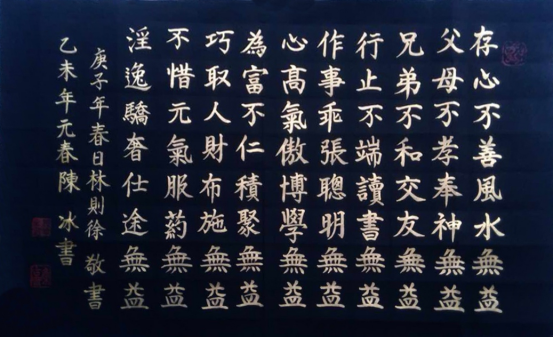 存心不善風水無益
父母不孝奉神無益
兄弟不和交友無益
行止不端讀書無益
作事乖張聰明無益
心高氣傲博學無益
為富不仁積聚無益
巧取人財布施無益
不惜元氣服葯無益
淫逸驕奢仕途無益
庚子年春日林則徐敬書
乙未年元春陳冰書